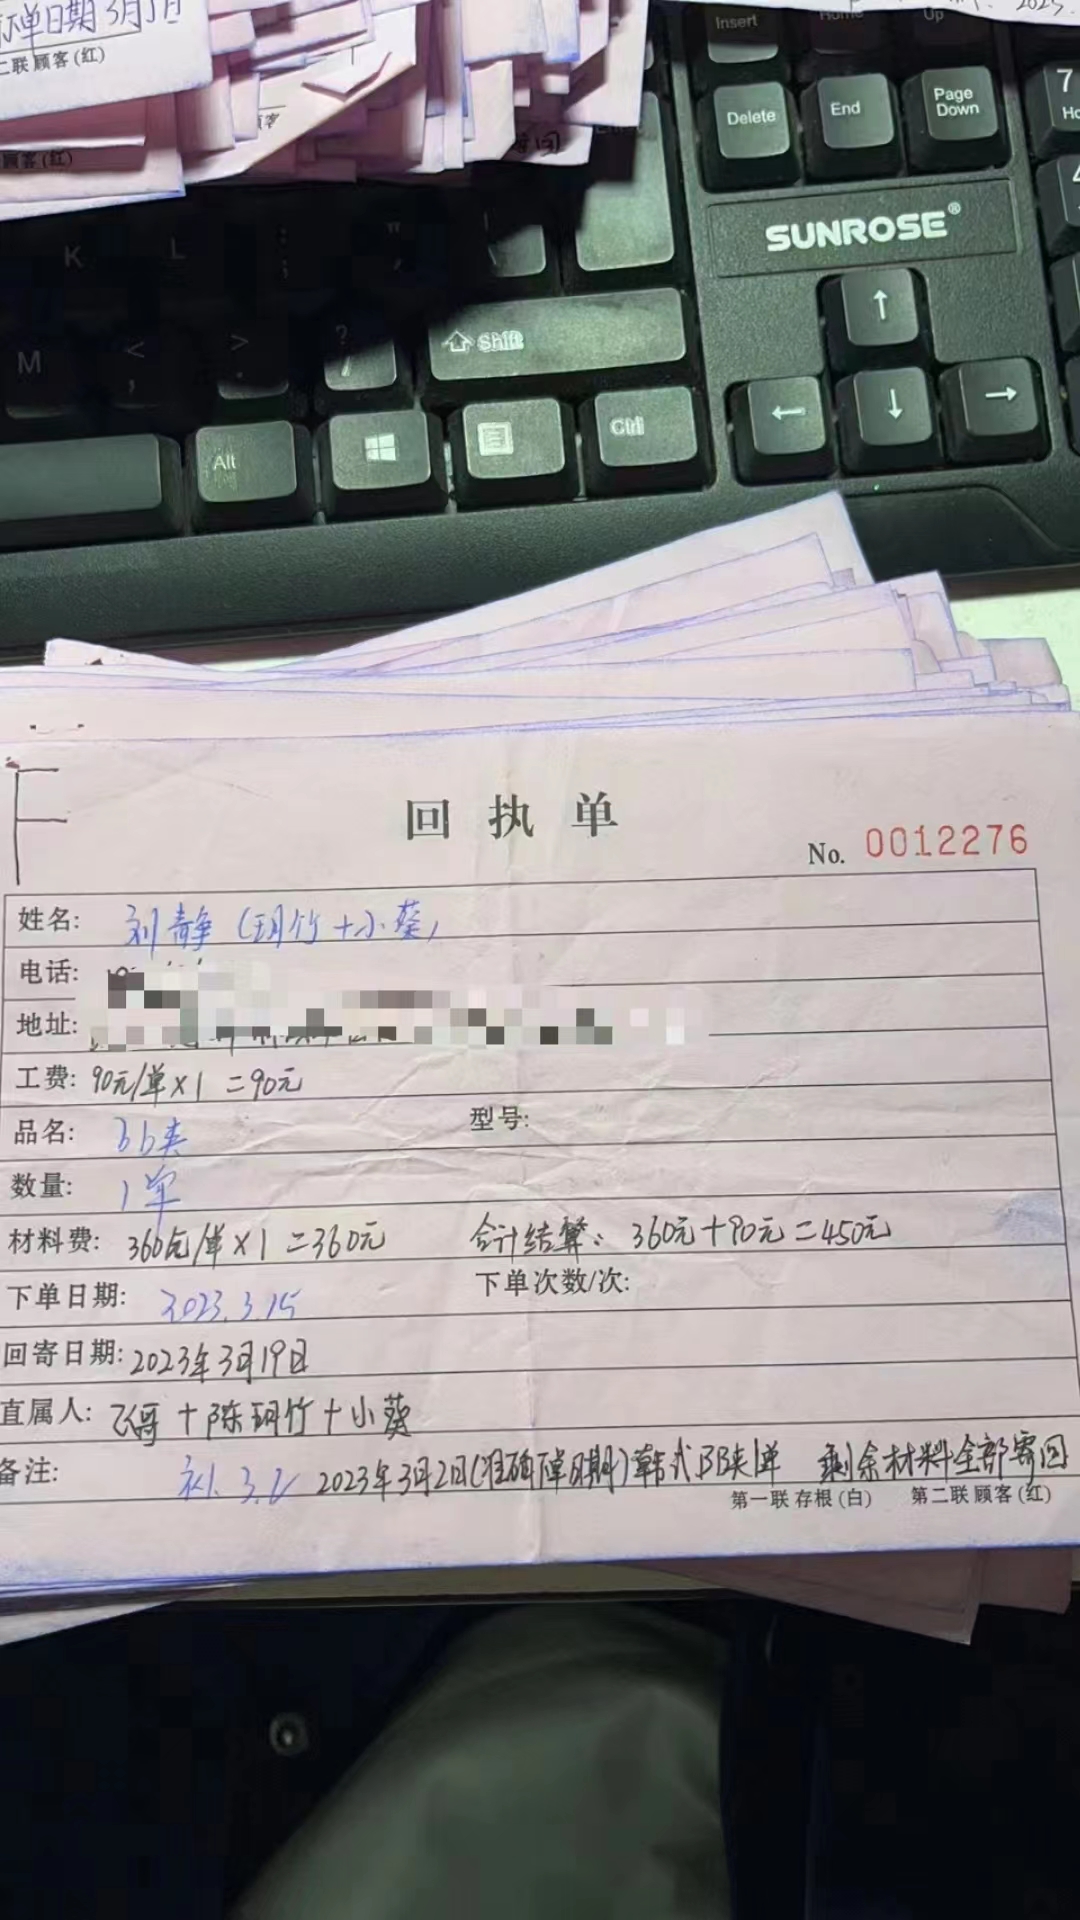 示单日期3月1日
二联 顾客(红)
顾客(红)
寄回
2023.
Insert
Home
Up
Delete
End
Page
Down
7
SUNROSE®
K
L
:
;
"
,
M
<
,
>
.
?
/
Shift
↑
←
↓
→
Alt
Ctrl
F
回执单
No. 0012276
姓名: 刘静(玥竹+小葵)
电话:
地址:
工费: 90元/单×1=90元
品名: bb夹
型号:
数量: 1单
材料费: 360元/单×1=360元
合计结算: 360元+90元=450元
下单日期: 2023.3.15
下单次数/次:
回寄日期: 2023年3月19日
直属人: 飞哥+陈玥竹+小葵
备注: 补 2023年3月2日(准确下单日期)韩式BB夹1单 剩余材料全部寄回
第一联 存根(白) 第二联 顾客(红)